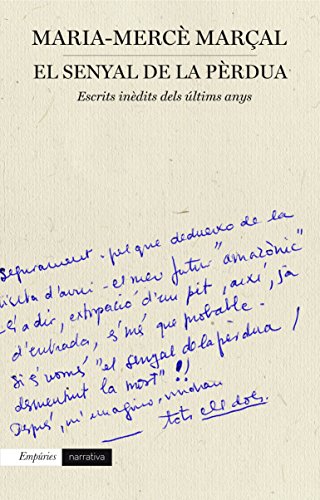 MARIA-MERCÈ MARÇAL
EL SENYAL DE LA PÈRDUA
Escrits inèdits dels últims anys
Segurament - pel que dedueixo de la
visita d'avui - el meu futur "amazònic"
-és a dir, extirpació d'un pit, així, ja
d'entrada, és més que probable.
Si és només "el senyal de la pèrdua!
desmentint la mort"!)
Després, m'imagino, vindran
tots ells dols.
Empúries
narrativa